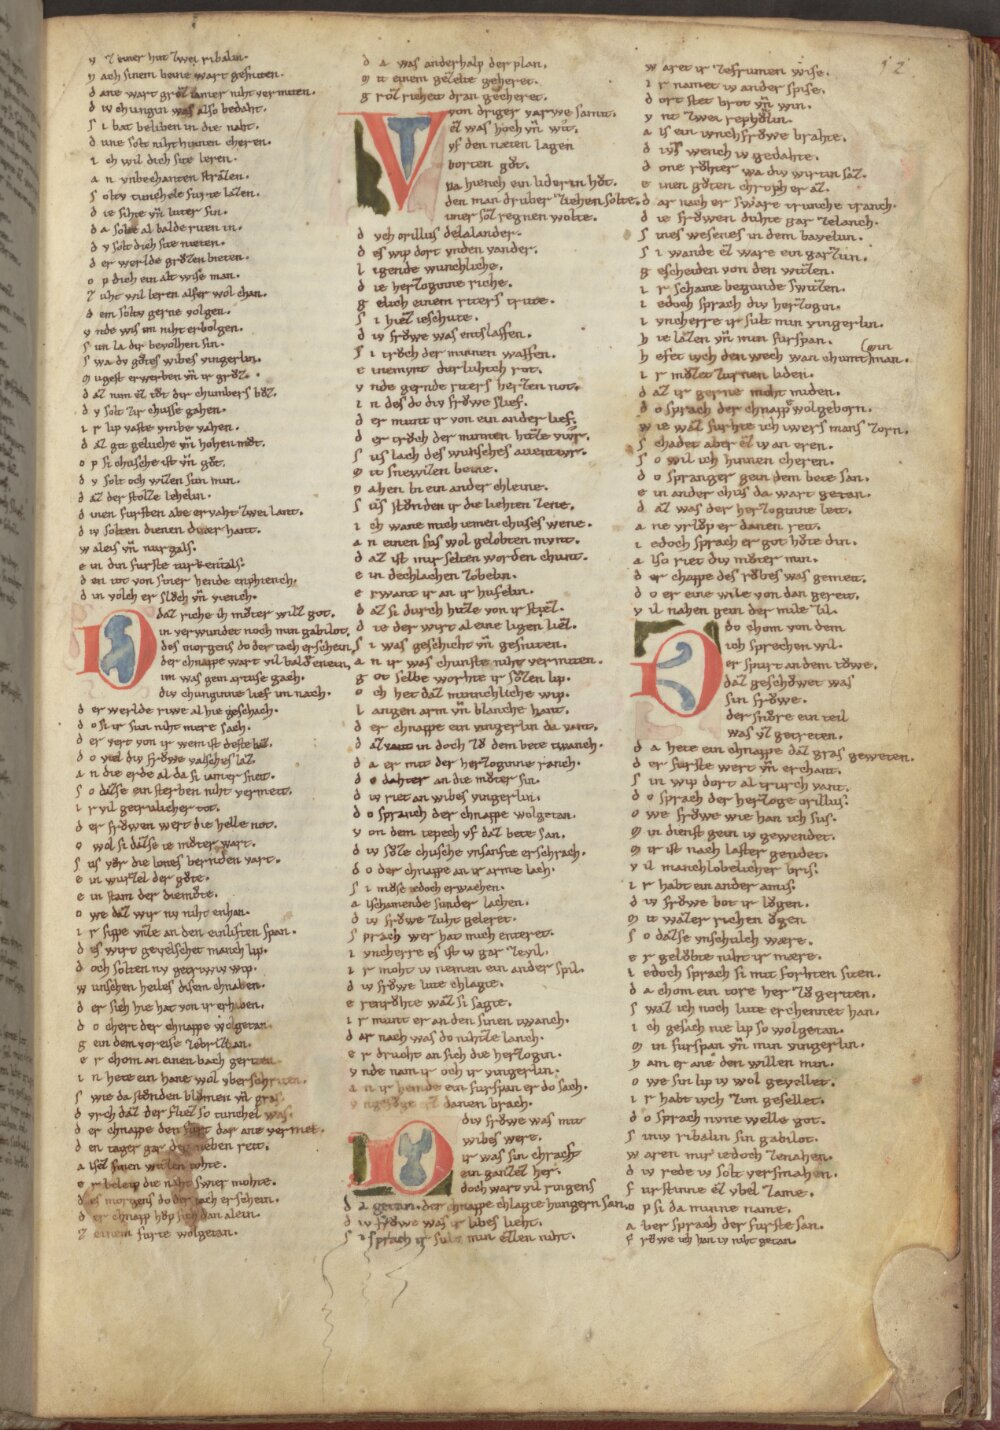 v z einer hut zwei ribalin.
n ach sinem beine wart gesniten.
d ane wart groz iamer niht vermiten.
d iv chungin was also bedaht.
s i bat beliben in die naht.
d une solt niht hinnen cheren.
i ch wil dich site leren.
a n vnbechanten strazen.
s oltv tunchele furte lazen.
d ie sihte vn luter sin.
d a solte al balde riten in.
d v solt dich site nieten.
d er werlde gruzen bieten.
o p dich ein alt wise man.
z uht wil leren alser wol chan.
d em soltv gerne volgen.
v nde wis im niht erbolgen.
s un la dir bevolhen sin.
s wa dv gůtes wibes vingerlin.
m ugest erwerben vn ir grůz.
d az nim ez tůt dir chumbers bůz.
d v solt zir chusse gahen.
i r lip vaste vmbe vahen.
d az git geluche vn hohen můt.
o p si chusche ist vn gůt.
d v solt och wizen sun min.
d az der stolze lehelin.
d inen fursten abe ervaht zwei lant.
d iv solten dienen diner hant.
w aleis vn nurgals.
e in din furste turkentals.
d en tot von siner hende enphiench.
d in volch er slůch vn viench.
D daz riche ih můter wils got.
in verwundet noch min gabilot.
des morgens do der tach erschein.
der chnappe wart vil balde enein.
im was gein artuse gach.
div chunginne lief im nach.
d er werlde riwe al hie geschach.
d o si ir sun niht mere sach.
d er reit von ir wem ist deste baz.
d o viel div frowe valsches laz.
a n die erde al da si iamer sneit.
s o daz se ein sterben niht vermeit.
i r vil getriulicher tot.
d er frowen wert die helle not.
o wol si daz se ie můter wart.
s us vůr die lones bernden vart.
e in wurzel der gůte.
e in stam der diemůte.
o we daz wir nv niht enhan.
i r sippe vnze an den einliften span.
d es wirt gevelschet manch lip.
d och solten nv getriwiv wip.
w unschen heiles disem chnaben.
d er sich hie hat von ir erhaben.
d o chert der chnappe wolgetan.
g ein dem voreise zobrizlian.
e r chom an einen bach geriten.
i n hete ein hane wol vberschriten.
s wie da stůnden blůmen vn gras.
d vrch daz der fliez so tunchel was.
d er chnappe den furt dar ane vermeit.
d en tager gar der neben reit.
a lsez sinen witzen tohte.
e r beleip die naht swier mohte.
d es morgens do der tach erschein.
d er chnapp hůp sich dan alein.
z einem furte wolgetan.
d a was anderhalp der plan.
m it einem gezelte geheret.
g roz richeit dran gecheret.
V von driger varwe samit.
ez was hoch vn wit.
vf den neten lagen
borten gůt.
da hiench ein liderin hůt.
den man druber ziehen solte.
imer soz regnen wolte.
d vch orillus delalander.
d es wip dort vnden vander.
l igende wunchliche.
d ie herzoginne riche.
g elich einem riters trute.
s i hiez ieschute.
d iv frowe was entslaffen.
s i trůch der minnen waffen.
e inen mvnt durluhtch rot.
v nde gernde riters herzen not.
i n des do div frowe slief.
d er munt ir von ein ander lief.
d er trůch der minnen hitze vivr.
s us lach des wunsches aventivr.
m it snewizen beine.
n ahen bi ein ander chleine.
s us stůnden ir die liehten zene.
i ch wane mich iemen chusses wene.
a n einen sus wol gelobten mvnt.
d az ist mir selten worden chunt.
e in dechlachen zobelin.
e rwant ir an ir hufelin.
d az si durch hitze von ir stiez.
d ie der wirt al eine ligen liez.
s i was geschicht vn gesniten.
a n ir was chunste niht vermiten.
g ot selbe worhte ir sůzen lip.
o ch het daz minnchliche wip.
l angen arm vn blanche hant.
d er chnappe ein vingerlin da vant.
d az in doch zů dem bete twanch.
d a er mit der herzoginne ranch.
d o dahter an die můter sin.
d iv riet an wibes vingerlin.
d o spranch der chnappe wolgetan.
v on dem tepech vf daz bete san.
d iv sůze chusche vnsanfte erschrach.
d o der chnappe an ir arme lach.
s i můse iedoch erwachen.
a l schamende sunder lachen.
d iv frowe zuht geleret.
s prach wer hat mich enteret.
i vncherre es ist iv gar zevil.
i r moht iv nemen ein ander zil.
d iv frowe lute chlagte.
e renrůhte waz si sagte.
i r munt er an den sinen twanch.
d ar nach was do niht ze lanch.
e r druoht an sich die herzogin.
v nde nam ir och ir vingerlin.
a n ir hemde ein furspan er do sach.
v ngefůge ez danen brach.
D div frowe was mit
wibes were.
ir was sin chraft
ein ganzez her.
doch wart vil ringens
d a getan. der chnappe chlagte hungern san.
d iv frowe was ir libes lieht.
s i sprach ir sult min ezzen niht.
w aret ir zefrumen wise.
i r namet iv ander spise.
d ort stet brot vn win.
v nt zwei rephůlin.
a ls ein ivnchfrowe brahte.
d ivs wench iv gedahte.
d one růhter wa div wirtin saz.
e inen gůten chroph er az.
d ar nach er sware trunche tranch.
d ie frowen duhte gar zelanch.
s ines wesenes in dem bavelun.
s i wande ez ware ein garzun.
g escheiden von den witzen.
i r schame begunde switzen.
i edoch sprach div herzogin.
i vncherre ir sult min vingerlin.
h ie lazen vn min furspan.
h efet ivch den wech wan chumt min man.
i r můzet zurnen liden.
d az ir gerne moht miden.
d o sprach der chnapp wolgeborn.
w ie waz furhte ich iwers mans zorn.
s chadet aber ez iv an eren.
s o wil ich hinnen cheren.
d o spranger gein dem bete san.
e in ander chus da wart getan.
d az was der herzoginne leit.
a ne vrlop er danen reit.
i edoch sprach er got hůte din.
a lso riet div můter min.
d er chappe des rŏbes was gemeit.
d o er eine wile von dan gereit.
v il nahen gein der mile zil.
D do chom von dem
ich sprechen wil.
er spurt an dem towe.
daz geschowet was
sin frowe.
der snůre ein teil
was vz getreten.
d a hete ein chnappe daz gras geweten.
d er furste wert vn erchant.
s in wip dort al trurch vant.
d o sprach der herzoge orillus.
o we frowe wie han ich sus.
m in dienst gein iv gewendet.
m ir ist nach laster gendet.
v il manchlobelicher bris.
i r habt ein ander amis.
d iv frowe bot ir lŏgen.
m it wazer richen ŏgen
s o daz se vnschulch wære.
e r gelŏbte niht ir mære.
i edoch sprach si mit forhten siten.
d a chom ein tore her zů geriten.
s waz ich noch lute erchennet han.
i ch gesach nie lip so wolgetan.
m in furspan vn min vingerlin.
n am er ane den willen min.
o we sin lip iv wol gevellet.
i r habt ivch zim gesellet.
d o sprach nvne welle got.
s iniv ribalin sin gabilot.
w aren mir iedoch zenahen.
d iv rede iv solt versmahen.
f urstinne ez vbel zame.
o p si da minne name.
a ber sprach der furste san.
f rowe ich han iv niht getan.